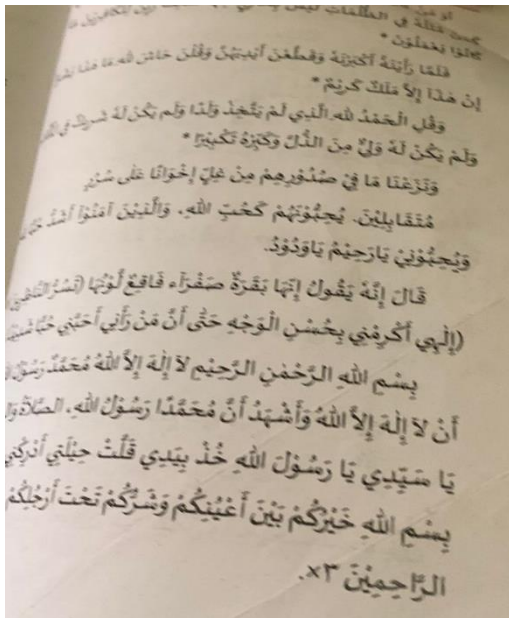 أو من
كمن مثله في الظلمات ليس
كانوا يعملون *
فَلَمَّا رَأَيْنَهُ أَكْبَرْنَهُ وَقَطَّعْنَ أَيْدِيَهُنَّ وَقُلْنَ حَاشَ لِلّٰهِ مَا هٰذَا
إِنْ هٰذَا إِلاَّ مَلَكٌ كَرِيْمٌ *
وَقُلِ الْحَمْدُ لِلّٰهِ الَّذِي لَمْ يَتَّخِذْ وَلَدًا وَلَمْ يَكُنْ لَهُ شَرِيكٌ فِي
وَلَمْ يَكُنْ لَهُ وَلِيٌّ مِنَ الذُّلِّ وَكَبِّرْهُ تَكْبِيْرًا *
وَنَزَعْنَا مَا فِيْ صُدُوْرِهِمْ مِنْ غِلٍّ إِخْوَانًا عَلَى سُرُرٍ
مُتَقَابِلِيْنَ. يُحِبُّوْنَهُمْ كَحُبِّ اللهِ، وَالَّذِيْنَ آمَنُوْا أَشَدُّ حُبًّا
وَيُحِبُّوْنِيْ يَارَحِيْمُ يَاوَدُوْدُ.
قَالَ إِنَّهُ يَقُوْلُ إِنَّهَا بَقَرَةٌ صَفْرَآء فَاقِعٌ لَوْنُهَا (تَسُرُّ النَّاظِرِيْنَ
(إِلٰهِي أَكْرِمْنِي بِحُسْنِ الْوَجْهِ حَتَّى أَنَّ مَنْ رَأَنِي أَحَبَّنِي حُبًّا
بِسْمِ اللهِ الرَّحْمٰنِ الرَّحِيْمِ لاَ إِلٰهَ إِلاَّ اللهُ مُحَمَّدٌ رَسُوْلُ
أَنْ لاَ إِلٰهَ إِلاَّ اللهُ وَأَشْهَدُ أَنَّ مُحَمَّدًا رَسُوْلُ اللهِ، الصَّلاَةُ
يَا سَيِّدِي يَا رَسُوْلَ اللهِ خُذْ بِيَدِي قَلَّتْ حِيْلَتِي أَدْرِكْنِي
بِسْمِ اللهِ خَيْرُكُمْ بَيْنَ أَعْيُنِكُمْ وَشَرُّكُمْ تَحْتَ أَرْجُلِكُمْ
الرَّاحِمِيْنَ ×٣.